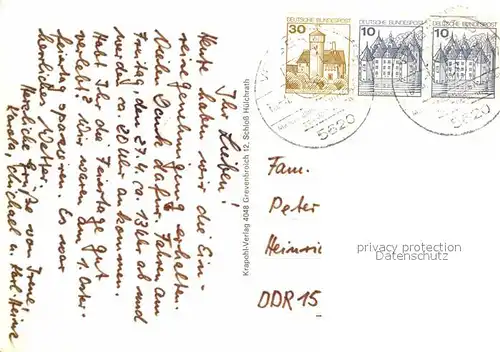 Ihr Lieben!
Heute haben wir die Ein-
reisegenehmigung erhalten.
Vielen Dank dafür. Fahren am
Freitag, den 27.4. ca. 13 Uhr ab und
werden ca. 20 Uhr ankommen.
Habt Ihr die Feiertage gut
verlebt? Wir waren am 1. Oster-
feiertag spazieren. Es war
herrliches Wetter.
Herzliche Grüße von Irene,
Michael u. Karl-Heinz
Krapohl-Verlag 4048 Grevenbroich 12, Schloß Hülchrath
30 DEUTSCHE BUNDESPOST
10 DEUTSCHE BUNDESPOST
10 DEUTSCHE BUNDESPOST
5620
5620
Fam.
Peter
Heinric
DDR 15
privacy protection
Datenschutz